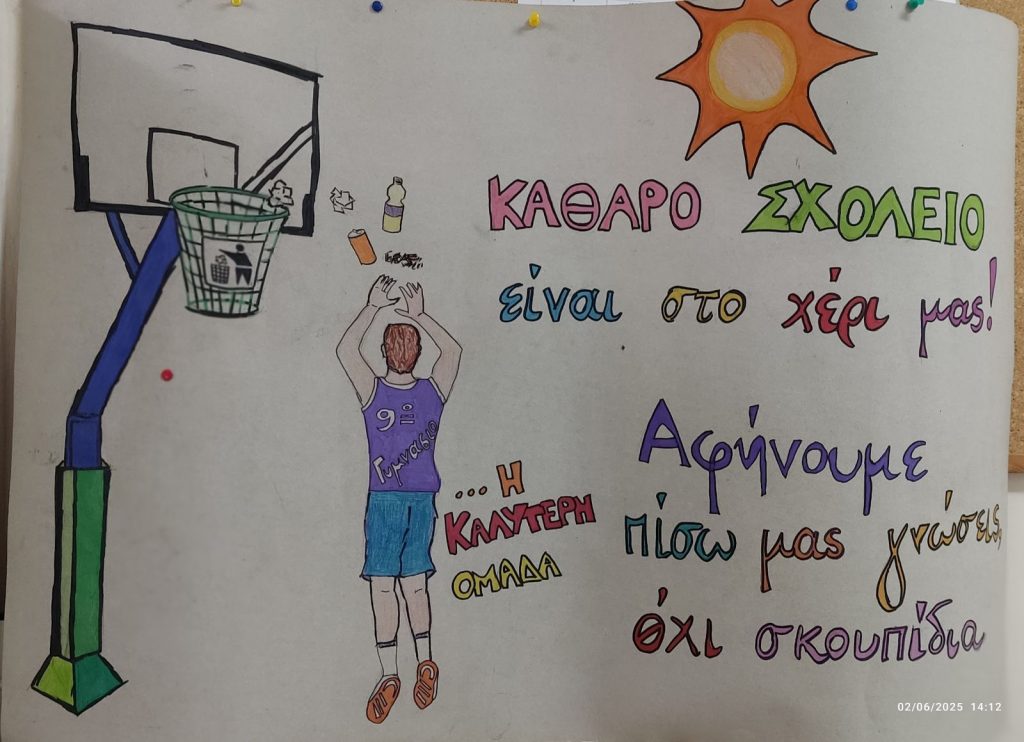 ΚΑΘΑΡΟ ΣΧΟΛΕΙΟ
είναι στο χέρι μας!
9ο
Γυμνάσιο
...Η
ΚΑΛΥΤΕΡΗ
ΟΜΑΔΑ
Αφήνουμε
πίσω μας γνώσεις,
όχι σκουπίδια
02/06/2025 14:12